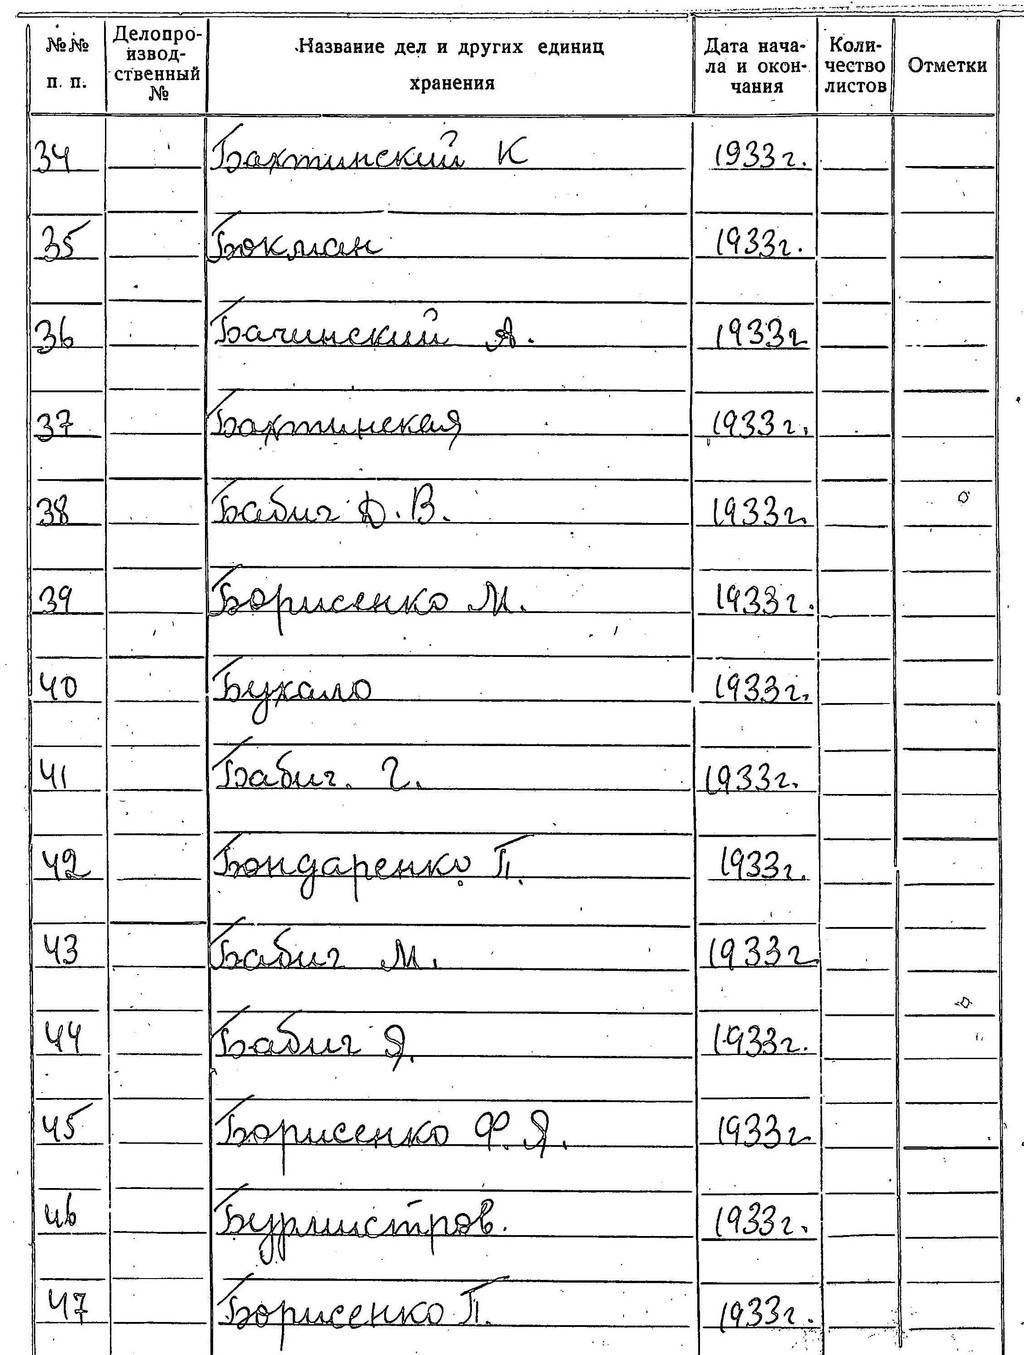 №№ п. п. Делопроизводственный № Название дел и других единиц хранения Дата начала и окончания Количество листов Отметки
34 Бахтинский К 1933г.
35 Бокман 1933г.
36 Бачинский А. 1933г
37 Бахтинская 1933г.
38 Бабич Д. В. 1933г.
39 Борисенко М. 1933г.
40 Бухало 1933г.
41 Бабич. Г. 1933г.
42 Бондаренко П. 1933г.
43 Бабич М. 1933г
44 Бабич Я. 1933г.
45 Борисенко Ф. Я. 1933г
46 Бурмистров. 1933г.
47 Борисенко П. 1933г.